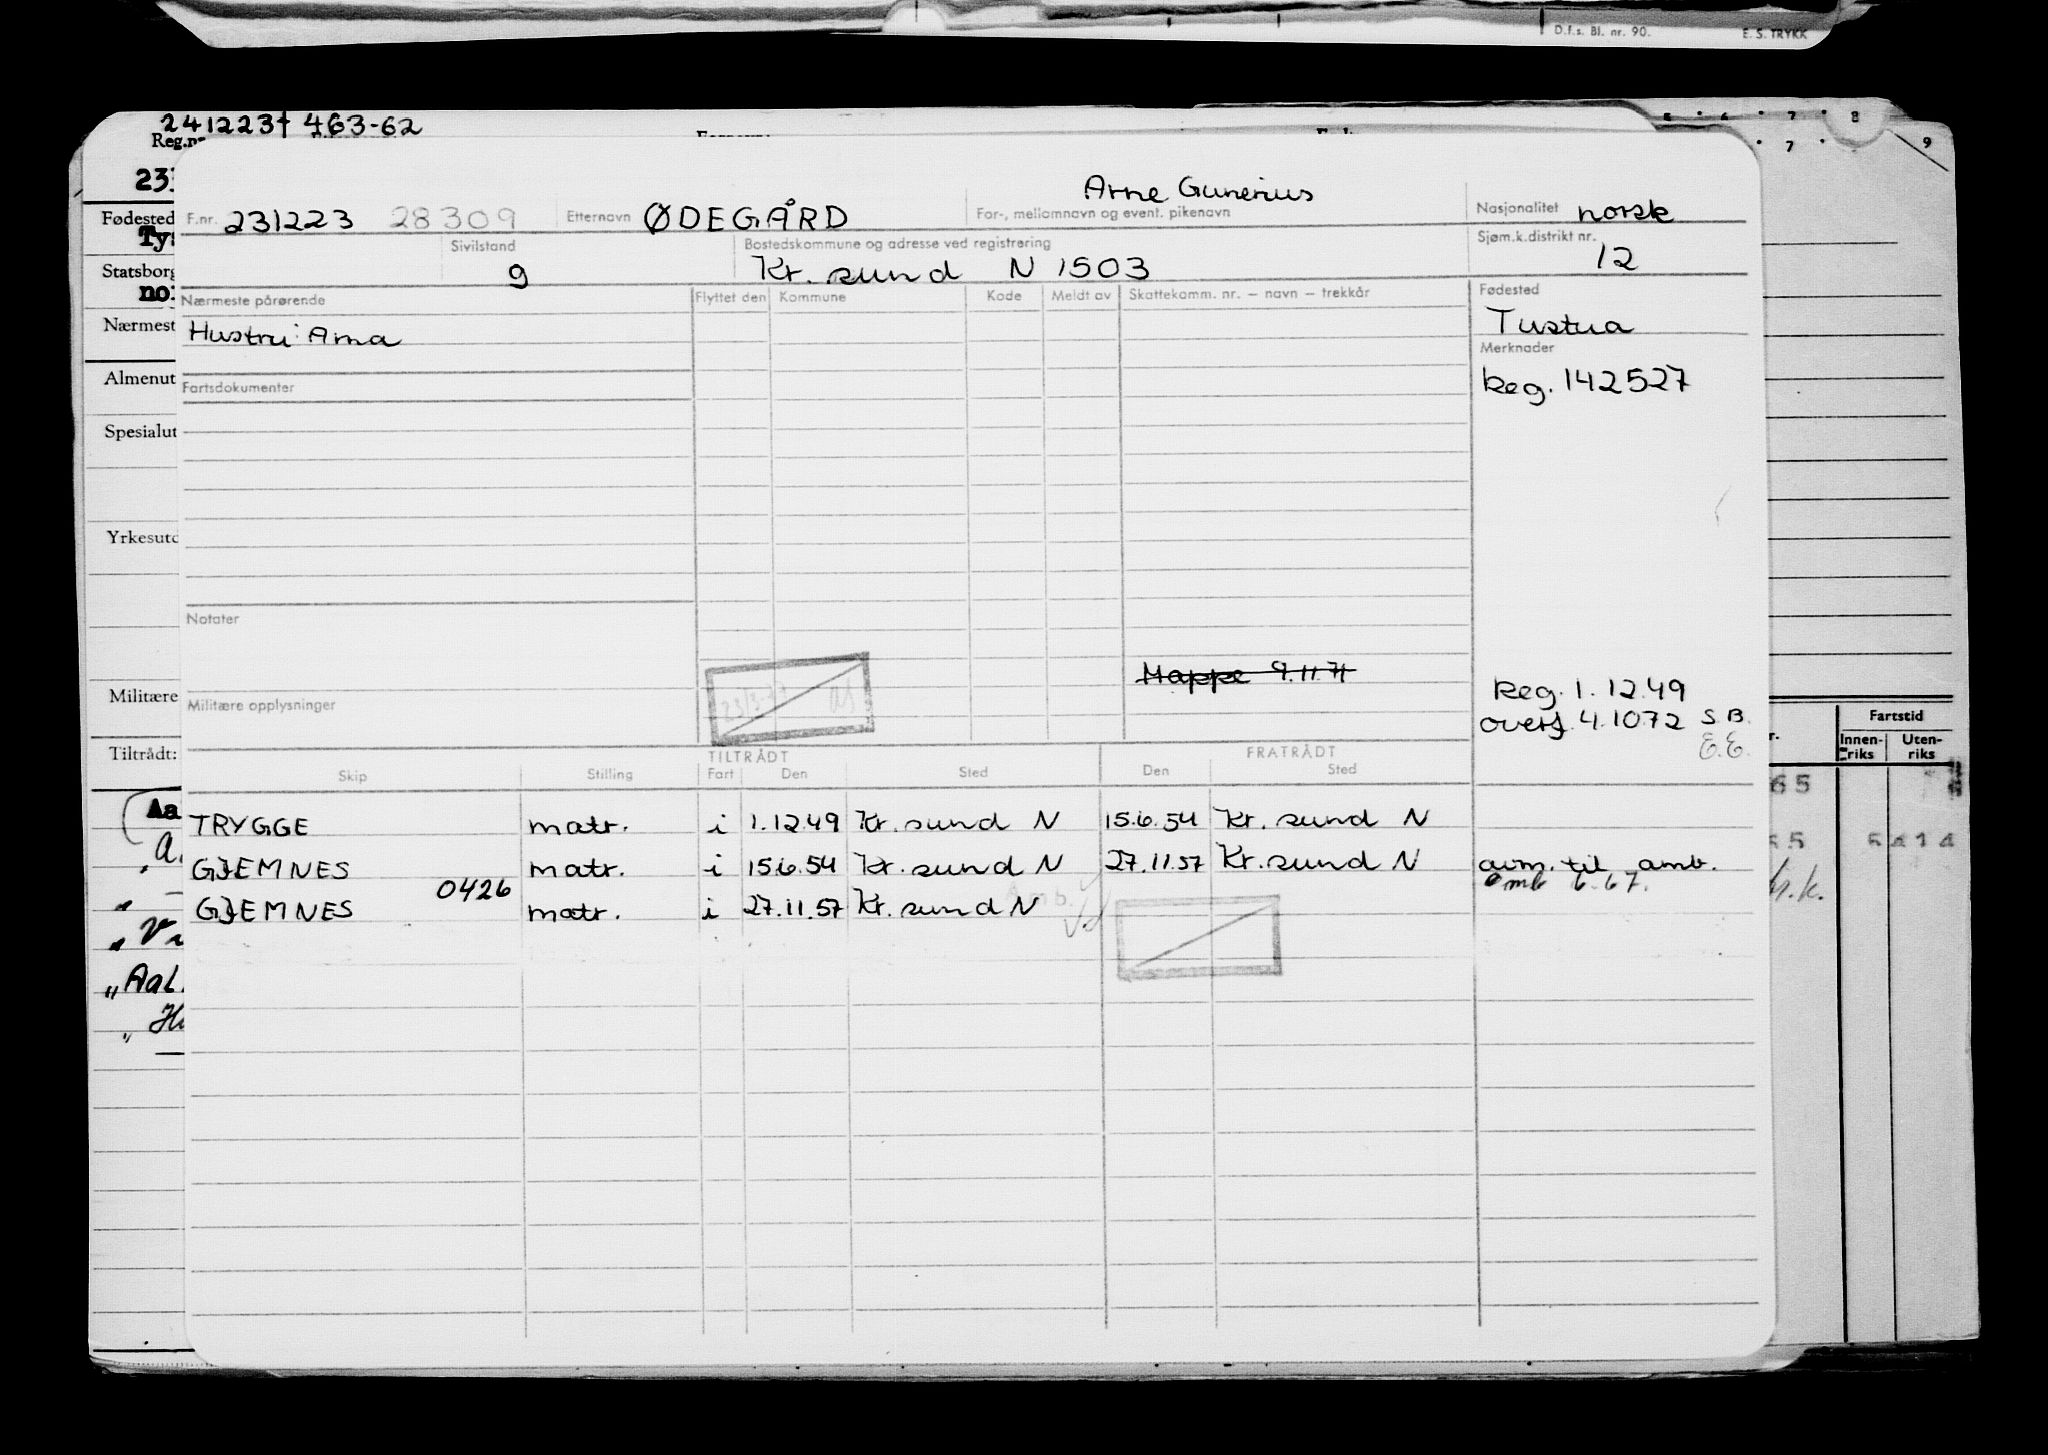 D.f.s. Bl. nr. 90. E. S. TRYKK
241223+ 463-62
Reg.nr
F.nr. 231223 28309 Etternavn ØDEGÅRD Arne Gunerius
For-, mellomnavn og event. pikenavn
Nasjonalitet norsk
Sivilstand g
Bostedskommune og adresse ved registrering
Kr. sund N 1503
Sjøm.k.distrikt nr.
12
Nærmeste pårørende
Flyttet den Kommune Kode Meldt av Skattekomm. nr. – navn – trekkår
Fødested
Hustru: Arna
Tustna
Merknader
Reg. 142527
Fartsdokumenter
Notater
Mappe 9.11.71
Militære opplysninger
Reg. 1.12.49
overf. 4.1072 S.B.
E.E.
TILTRÅDT FRATRÅDT
Skip Stilling Fart Den Sted Den Sted
TRYGGE matr. i 1.12.49 Kr. sund N 15.6.54 Kr. sund N
GJEMNES matr. i 15.6.54 Kr. sund N 27.11.57 Kr. sund N avm. til amb.
GJEMNES 0426 matr. i 27.11.57 Kr. sund N
amb 6.67.
Fødested
Statsborg
Nærmest
Almenut
Spesialut
Yrkesutd
Militære
Tiltrådt:
Fartstid
Innen-
riks
Uten-
riks